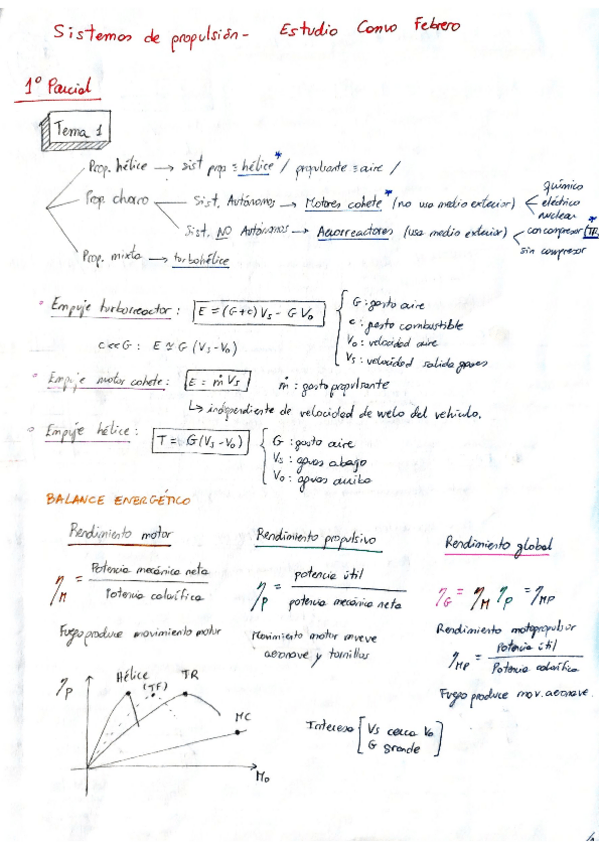 Sistemas de propulsión - Estudio Convo Febrero
1º Parcial
Tema 1
Prop. hélice → sist prop ≡ hélice* / propulsante ≡ aire /
Prop. chorro
Sist. Autónomos → Motores cohete* (no uso medio exterior)
químico
eléctrico
nuclear
Sist. NO Autónomos → Aerorreactores (usa medio exterior)
con compresor (TR*
sin compresor
Prop. mixta → turbohélice
• Empuje turborreactor: E = (G+c) Vs - G Vo
G: gasto aire
c: gasto combustible
Vo: velocidad aire
Vs: velocidad salida gases
c<<G: E ≃ G (Vs - Vo)
• Empuje motor cohete: E = ṁ Vs ṁ: gasto propulsante
↳ independiente de velocidad de vuelo del vehículo.
• Empuje hélice: T = G (Vs - Vo)
G: gasto aire
Vs: aguas abajo
Vo: aguas arriba
BALANCE ENERGÉTICO
Rendimiento motor
η_M = Potencia mecánica neta / Potencia calorífica
Fuego produce movimiento motor
Rendimiento propulsivo
η_P = potencia útil / potencia mecánica neta
Movimiento motor mueve
aeronave y tornillos
Rendimiento global
η_G = η_M η_P = η_MP
Rendimiento motopropulsor
η_MP = Potencia útil / Potencia calorífica
Fuego produce mov. aeronave.
η_P
Hélice
(TF)
TR
MC
Mo
Interesa [Vs cerca Vo
G grande]